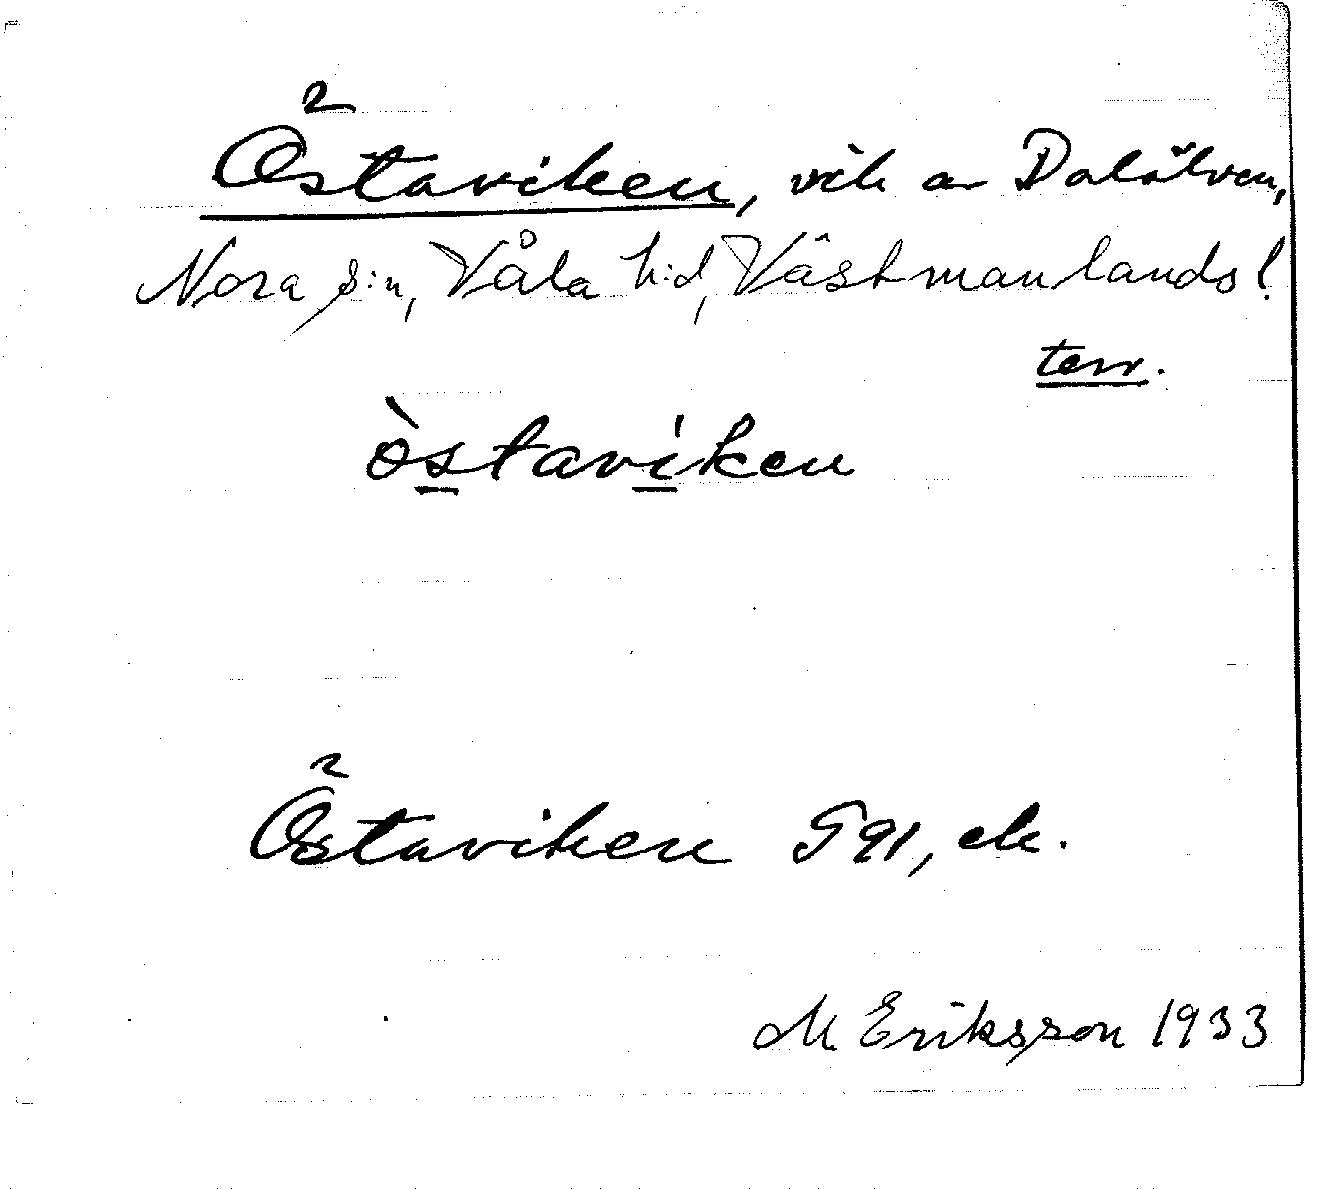 Östaviken, vik av Dalälven,
Nora s:n, Våla h:d, Västmanlands l.
terr.
òstaviken
Östaviken G 91, ek.
M Eriksson 1933